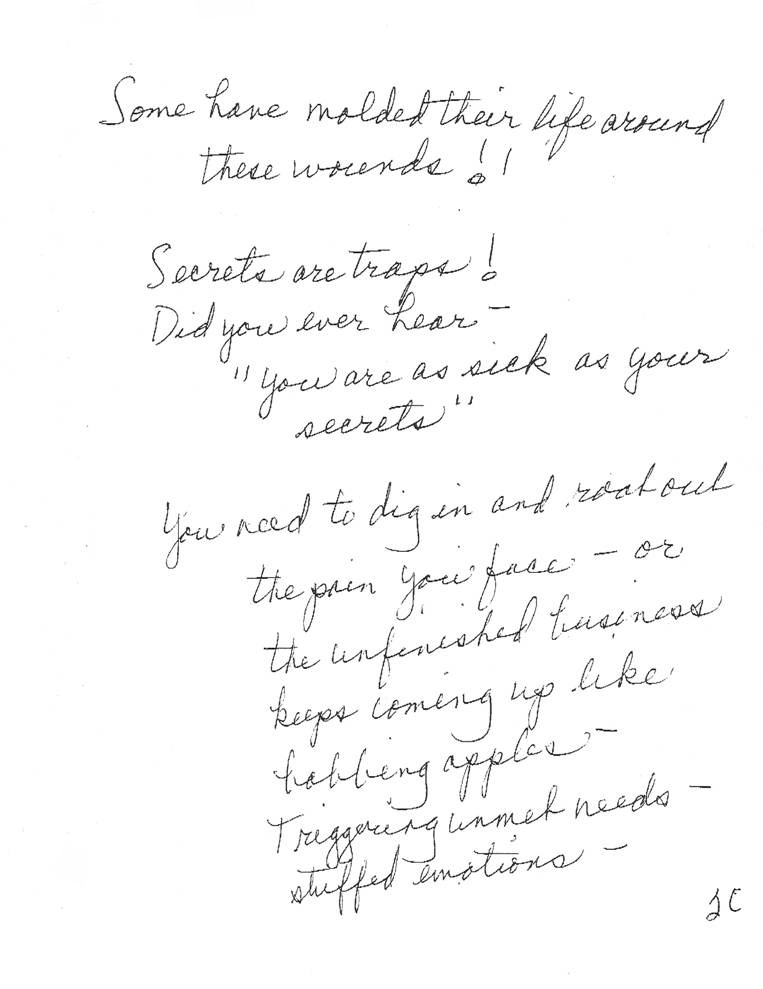 Some have molded their life around
these wounds!!
Secrets are traps!
Did you ever hear –
"You are as sick as your
secrets"
You need to dig in and root out
the pain you face – or
the unfinished business
keeps coming up like
bobbing apples –
Triggering unmet needs –
stuffed emotions –